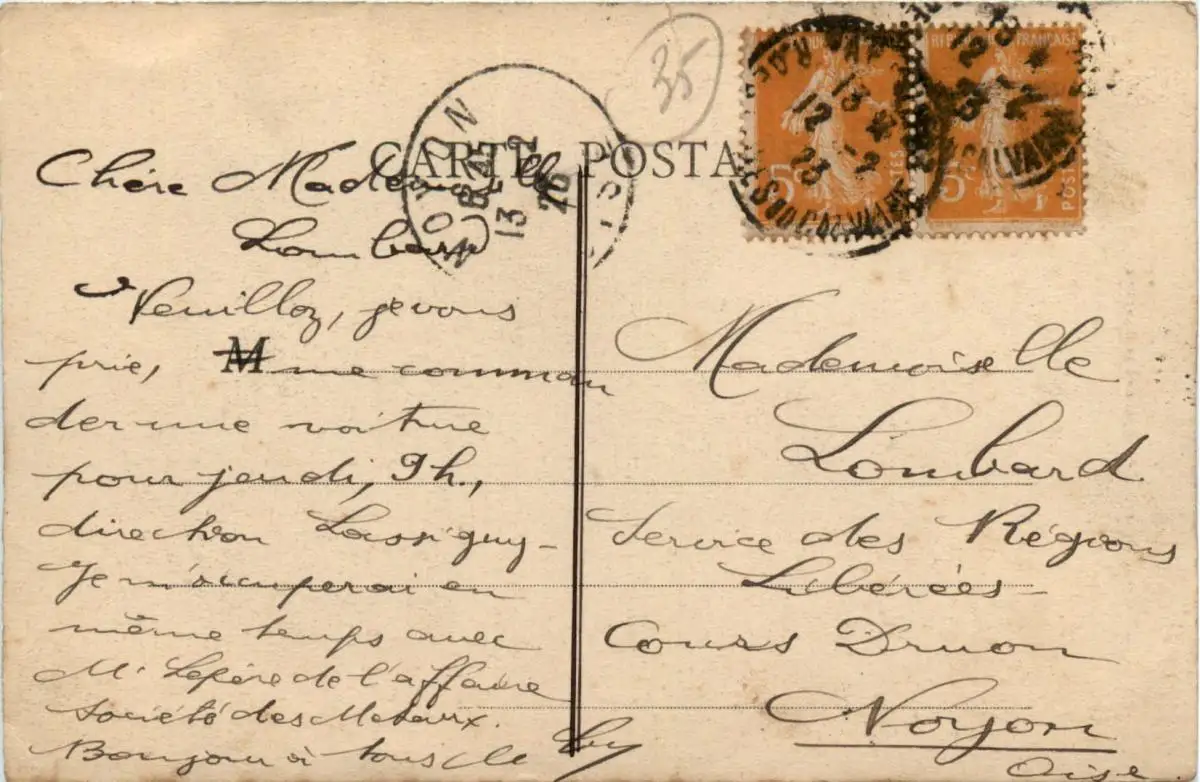 35
CARTE POSTA
RÉPUBLIQUE FRANÇAISE
5c POSTES
5c POSTES
12 -2 23
NOYON
13 -2
OISE
CALVAIRE
Chère Mademoiselle
Lombard
Veuillez, je vous
prie, M me comman
der une voiture
pour jeudi, 9h.,
direction Lassigny -
Je m'occuperai en
même temps avec
Mr Lepère de l'affaire
Société des Métaux.
Bonjour à tous
Mademoiselle
Lombard
Service des Régions
Libérées
Cours Druon
Noyon
Oise